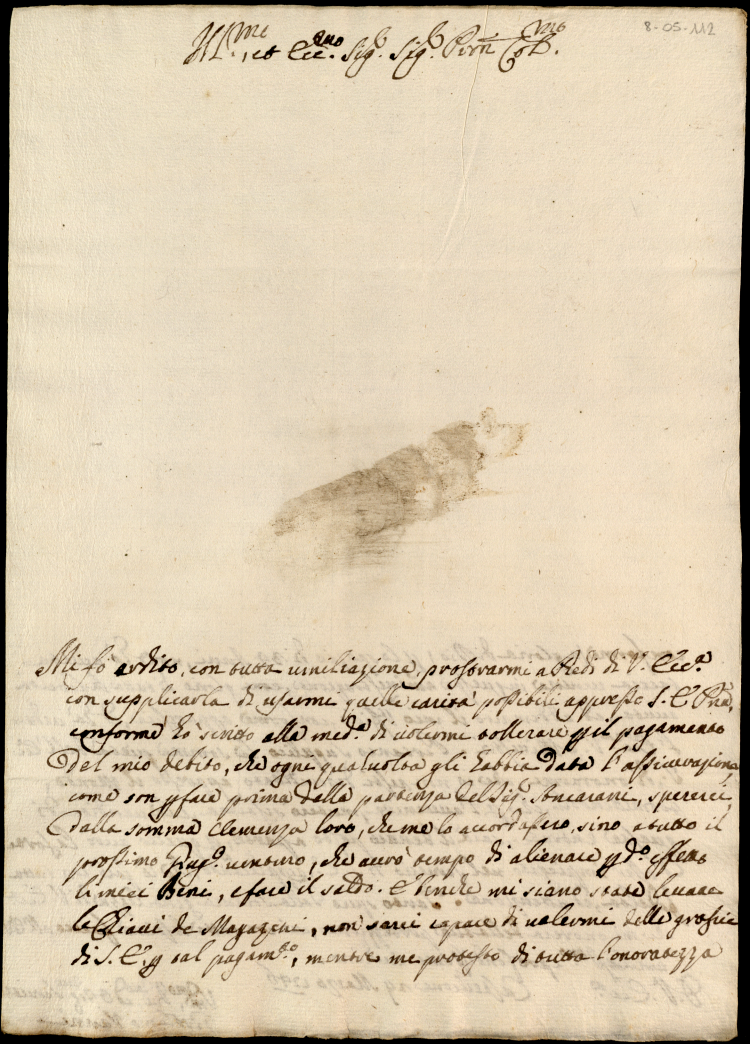 8-05-112
Ill.mo, et Ecc.mo Sig.r Sig.r Pron Col.mo
Mi fò ardito, con tutta umiliazione, prostrarmi a Piedi di V. Ecc.a
con supplicarla di usarmi quelle carità possibili appresso S. E. Pne,
conforme hò scritto alla med.a di volermi tollerare p il pagamento
del mio debito, che ogne qualvolta gli habbia data l'assicurazione,
come son p fare prima della partenza del Sig.r Ancarani, sperarei,
dalla somma Clemenza loro, che me lo accordassero, sino a tutto il
prossimo Giug.o venturo, che averò tempo di alienare p d.o effetto
li miei Beni, e fare il saldo. E benche mi siano state levate
le Chiavi de Magazeni, non sarei capace di valermi delle grascie
di S. E. p tal pagam.to, mentre me protesto di tutta l'onoratezza